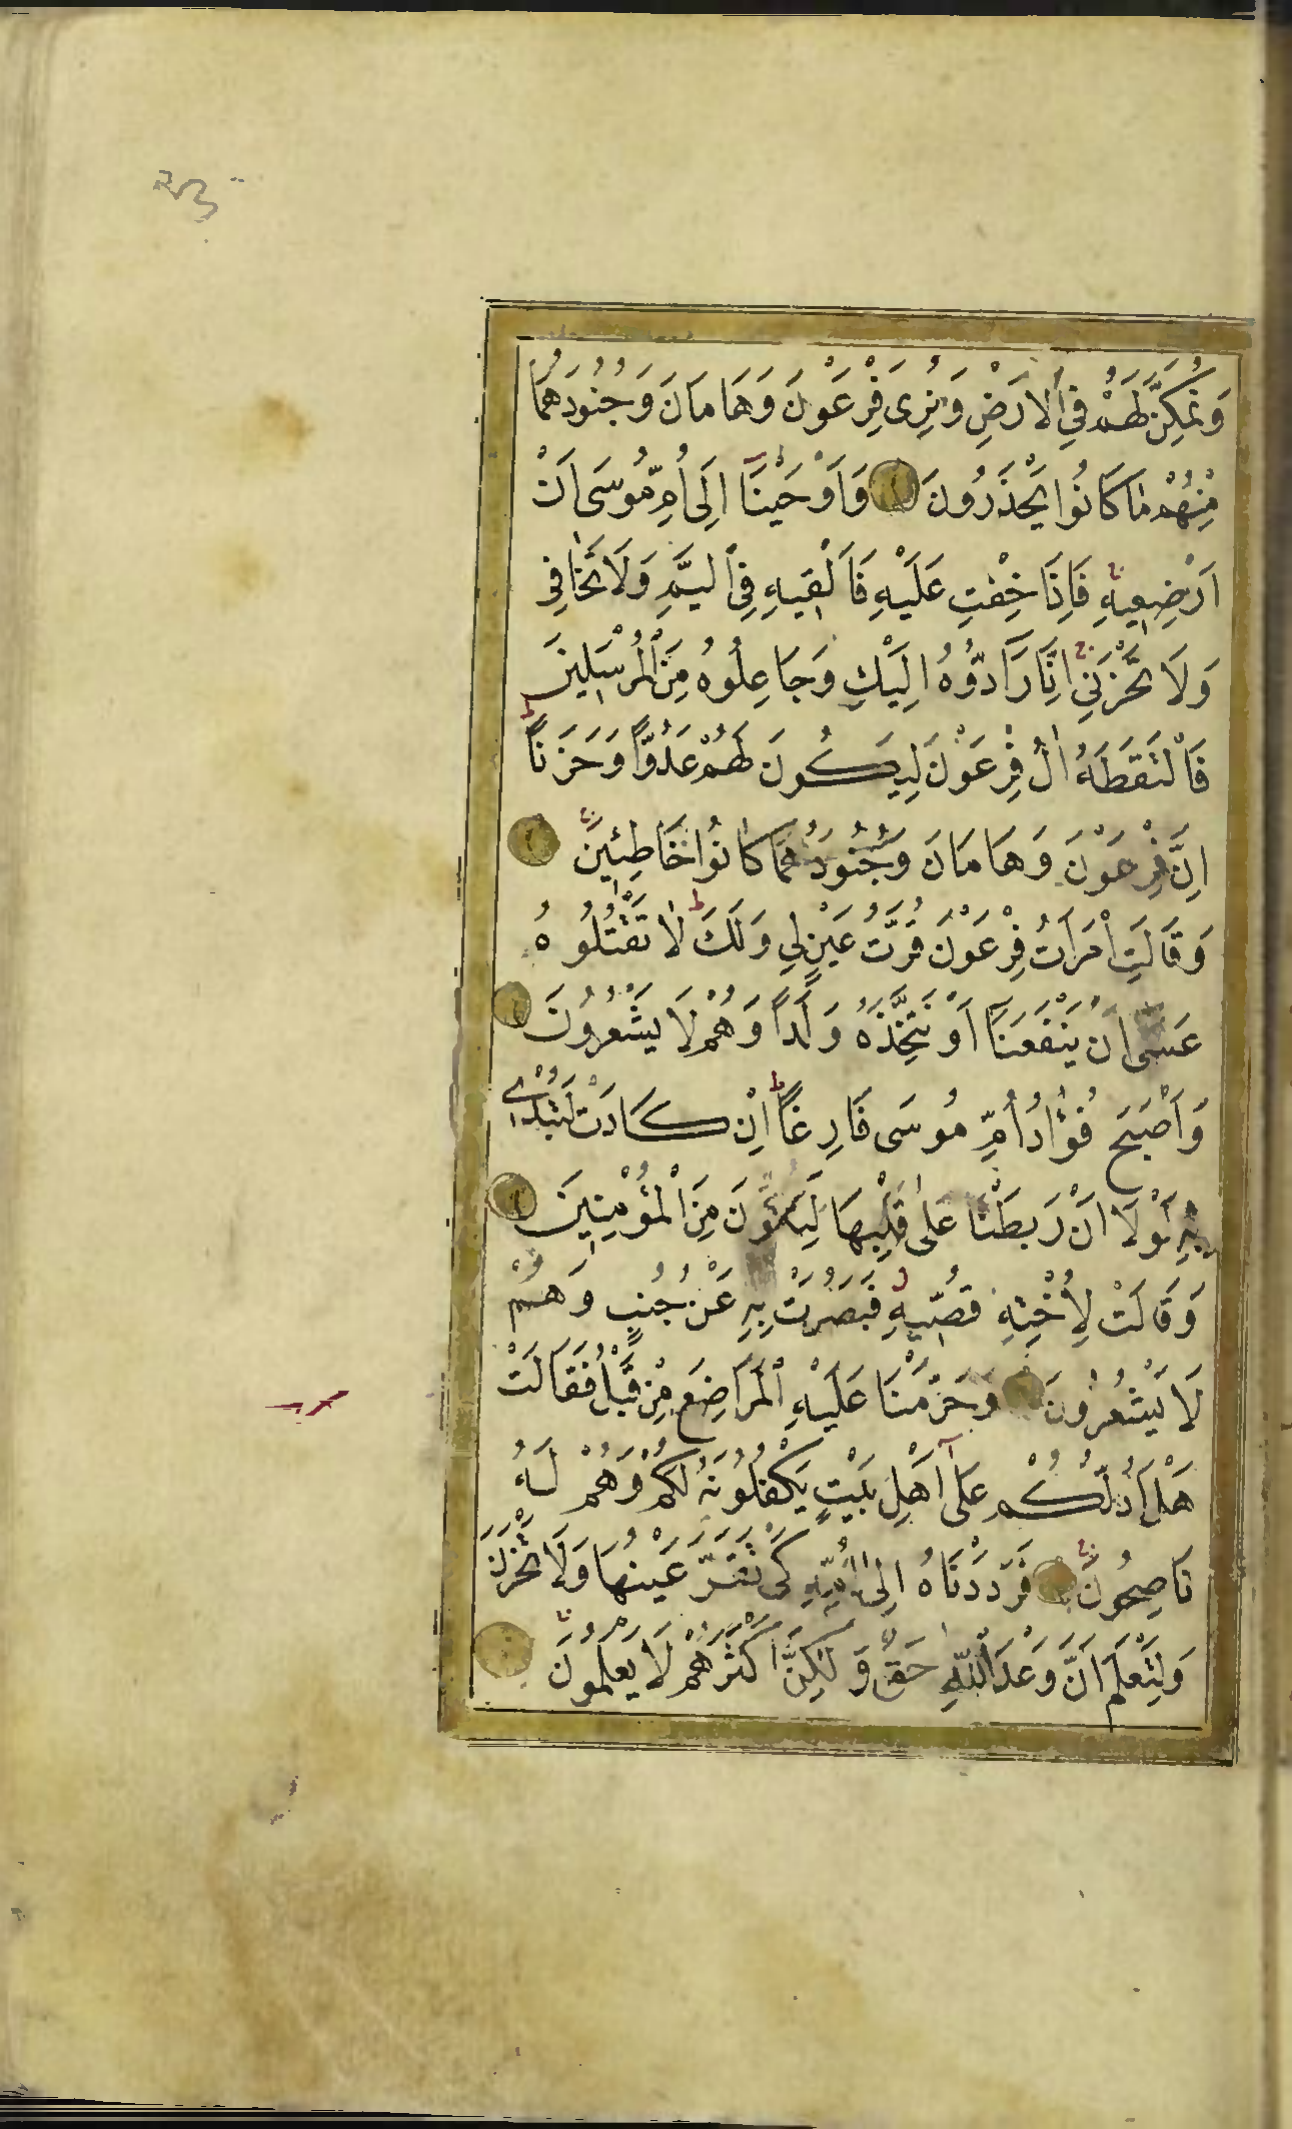 وَنُمَكِّنَ لَهُمْ فِي الْاَرْضِ وَنُرِىَ فِرْعَوْنَ وَهَامَانَ وَجُنُودَهُمَا
مِنْهُمْ مَا كَانُوا يَحْذَرُونَ وَاَوْحَيْنَآ اِلَى اُمِّ مُوسَى اَنْ
اَرْضِعِيهِ فَاِذَا خِفْتِ عَلَيْهِ فَاَلْقِيهِ فِي الْيَمِّ وَلَا تَخَافِى
وَلَا تَحْزَنِي اِنَّا رَآدُّوهُ اِلَيْكِ وَجَاعِلُوهُ مِنَ الْمُرْسَلِينَ
فَالْتَقَطَهُ اٰلُ فِرْعَوْنَ لِيَكُونَ لَهُمْ عَدُوًّا وَحَزَنًا
اِنَّ فِرْعَوْنَ وَهَامَانَ وَجُنُودَهُمَا كَانُوا خَاطِئِينَ
وَقَالَتِ امْرَاَتُ فِرْعَوْنَ قُرَّتُ عَيْنٍ لِي وَلَكَ لَا تَقْتُلُوهُ
عَسَى اَنْ يَنْفَعَنَآ اَوْ نَتَّخِذَهُ وَلَدًا وَهُمْ لَا يَشْعُرُونَ
وَاَصْبَحَ فُؤَادُ اُمِّ مُوسَى فَارِغًا اِنْ كَادَتْ لَتُبْدِي
بِهِ لَوْلَا اَنْ رَبَطْنَا عَلٰى قَلْبِهَا لِتَكُونَ مِنَ الْمُؤْمِنِينَ
وَقَالَتْ لِاُخْتِهِ قُصِّيهِ فَبَصُرَتْ بِهِ عَنْ جُنُبٍ وَهُمْ
لَا يَشْعُرُونَ وَحَرَّمْنَا عَلَيْهِ الْمَرَاضِعَ مِنْ قَبْلُ فَقَالَتْ
هَلْ اَدُلُّكُمْ عَلَىٓ اَهْلِ بَيْتٍ يَكْفُلُونَهُ لَكُمْ وَهُمْ لَهُ
نَاصِحُونَ فَرَدَدْنَاهُ اِلٰى اُمِّهِ كَىْ تَقَرَّ عَيْنُهَا وَلَا تَحْزَنَ
وَلِتَعْلَمَ اَنَّ وَعْدَ اللّٰهِ حَقٌّ وَلٰكِنَّ اَكْثَرَهُمْ لَا يَعْلَمُونَ